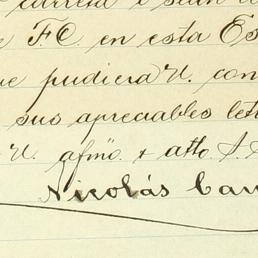 carreta
F.C. en esta Es
pudiera U. con
sus apreciables let
U. afmo. + atto. S. S.
Nicolás Cam